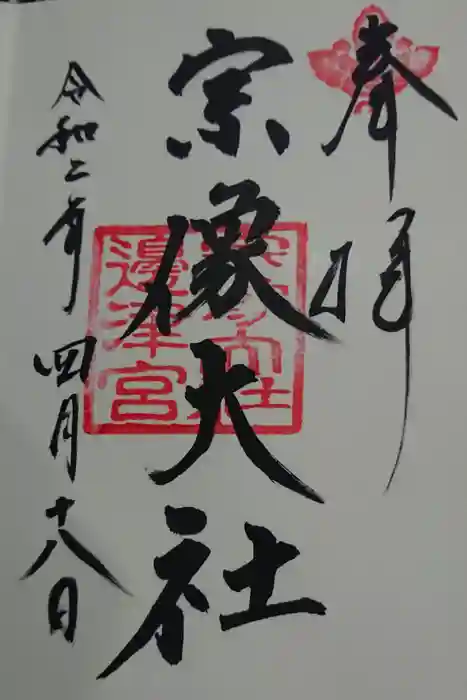 奉拝
宗像大社
宗像大社
邊津宮
令和二年四月十八日